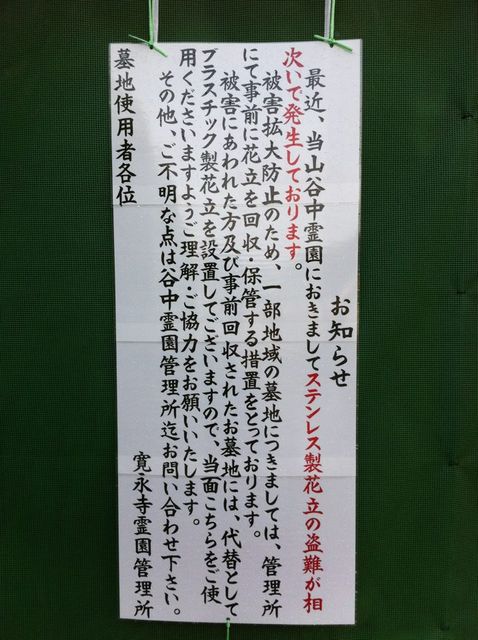 お知らせ
最近、当山谷中霊園におきましてステンレス製花立の盗難が相
次いで発生しております。
被害拡大防止のため、一部地域の墓地につきましては、管理所
にて事前に花立を回収・保管する措置をとっております。
被害にあわれた方及び事前回収されたお墓地には、代替として
プラスチック製花立を設置してございますので、当面こちらをご使
用くださいますようご理解・ご協力をお願いいたします。
その他、ご不明な点は谷中霊園管理所迄お問い合わせ下さい。
寛永寺霊園管理所
墓地使用者各位